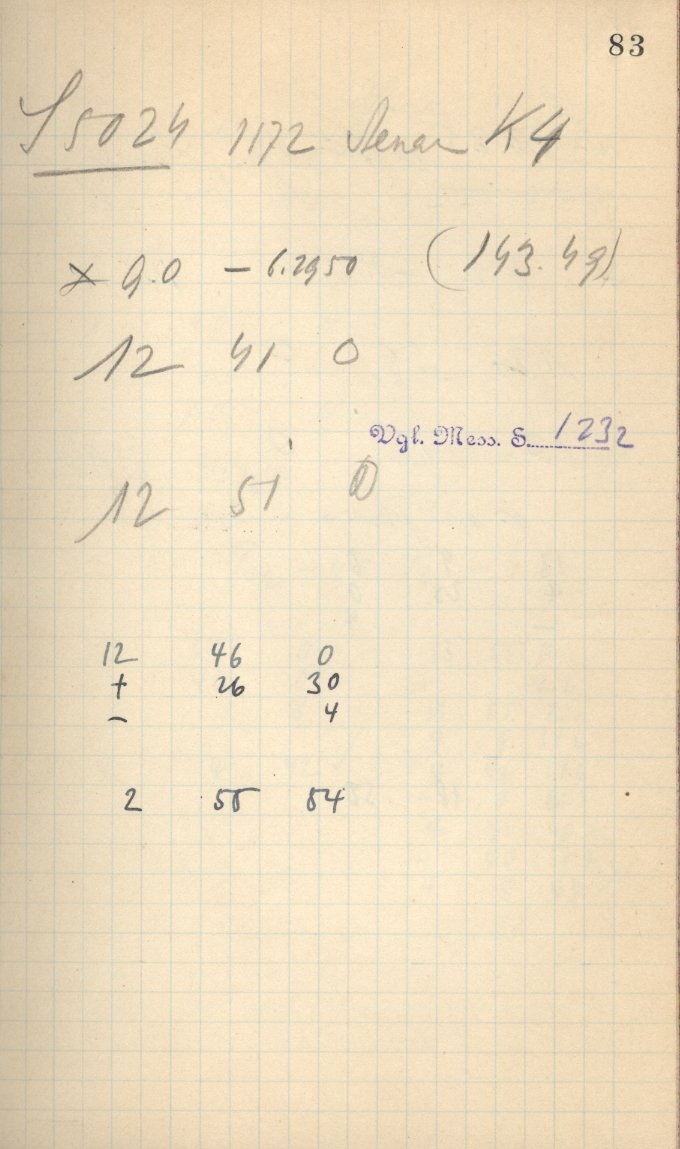 83
S 5024 1172 K4
× 9.0 – 6.2950 (143.49)
12 41 0
Vgl. Mess. S. 1232
12 51 0
12 46 0
+ 26 30
– 4
2 55 54